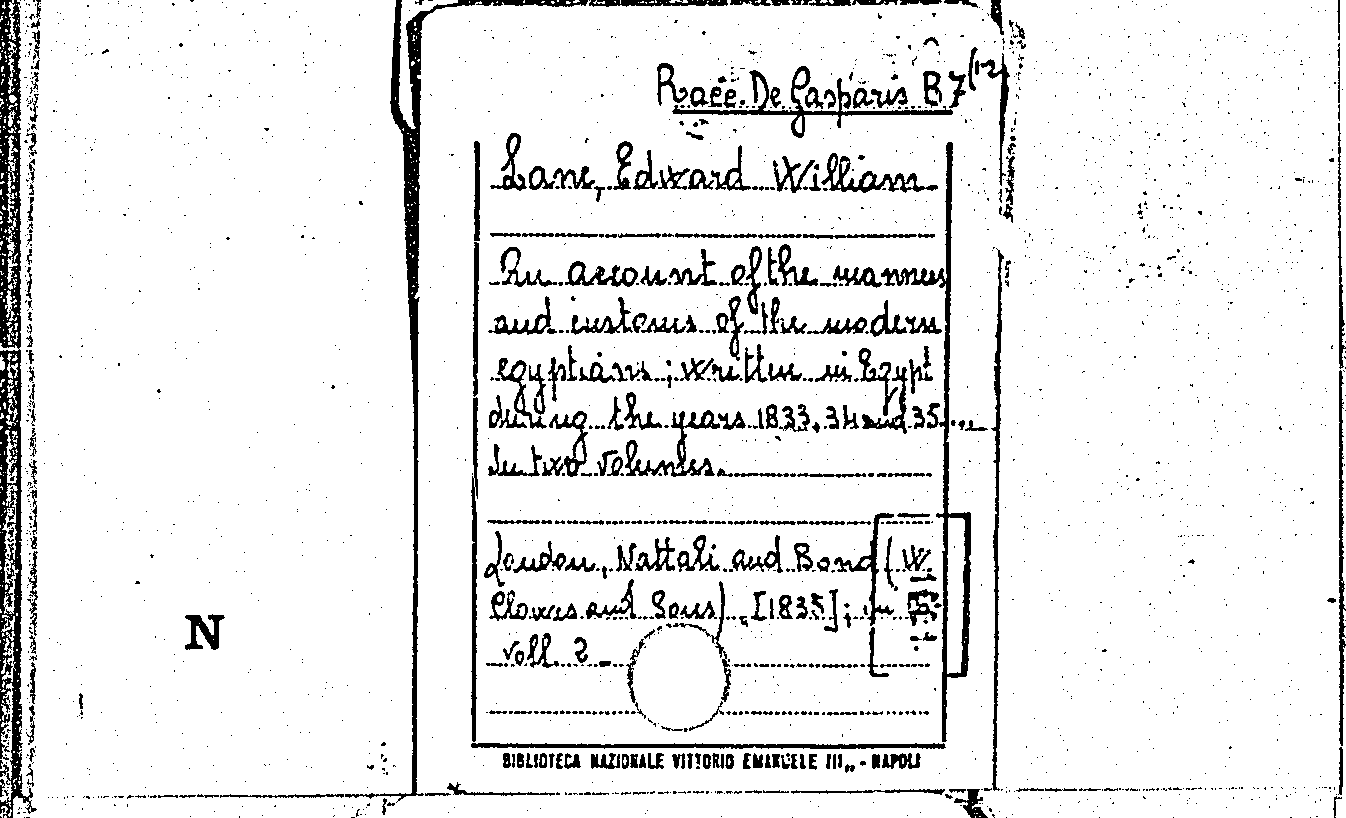 Racc. De Gasparis B7(1-2
Lane, Edward William
An account of the manners
and customs of the modern
egyptians; written in Egypt
during the years 1833, 34 and 35...
In two volumes.
London, Nattali and Bond (W.
Clowes and Sons), [1835]; in
voll. 2
N
BIBLIOTECA NAZIONALE VITTORIO EMANUELE III„ - NAPOLI